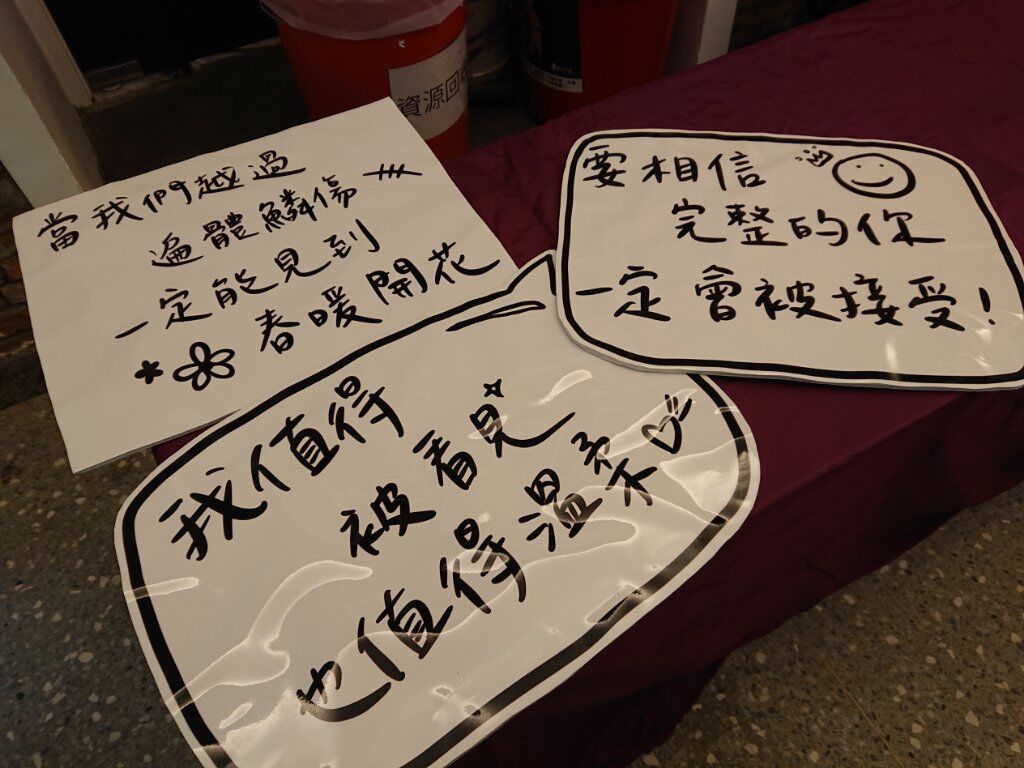 資源回
當我們越過
遍體鱗傷
一定能見到
春暖開花
要相信
完整的你
一定會被接受!
我值得
被看見
也值得溫柔